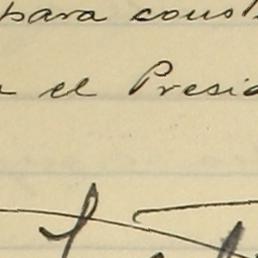 para const
el Presid